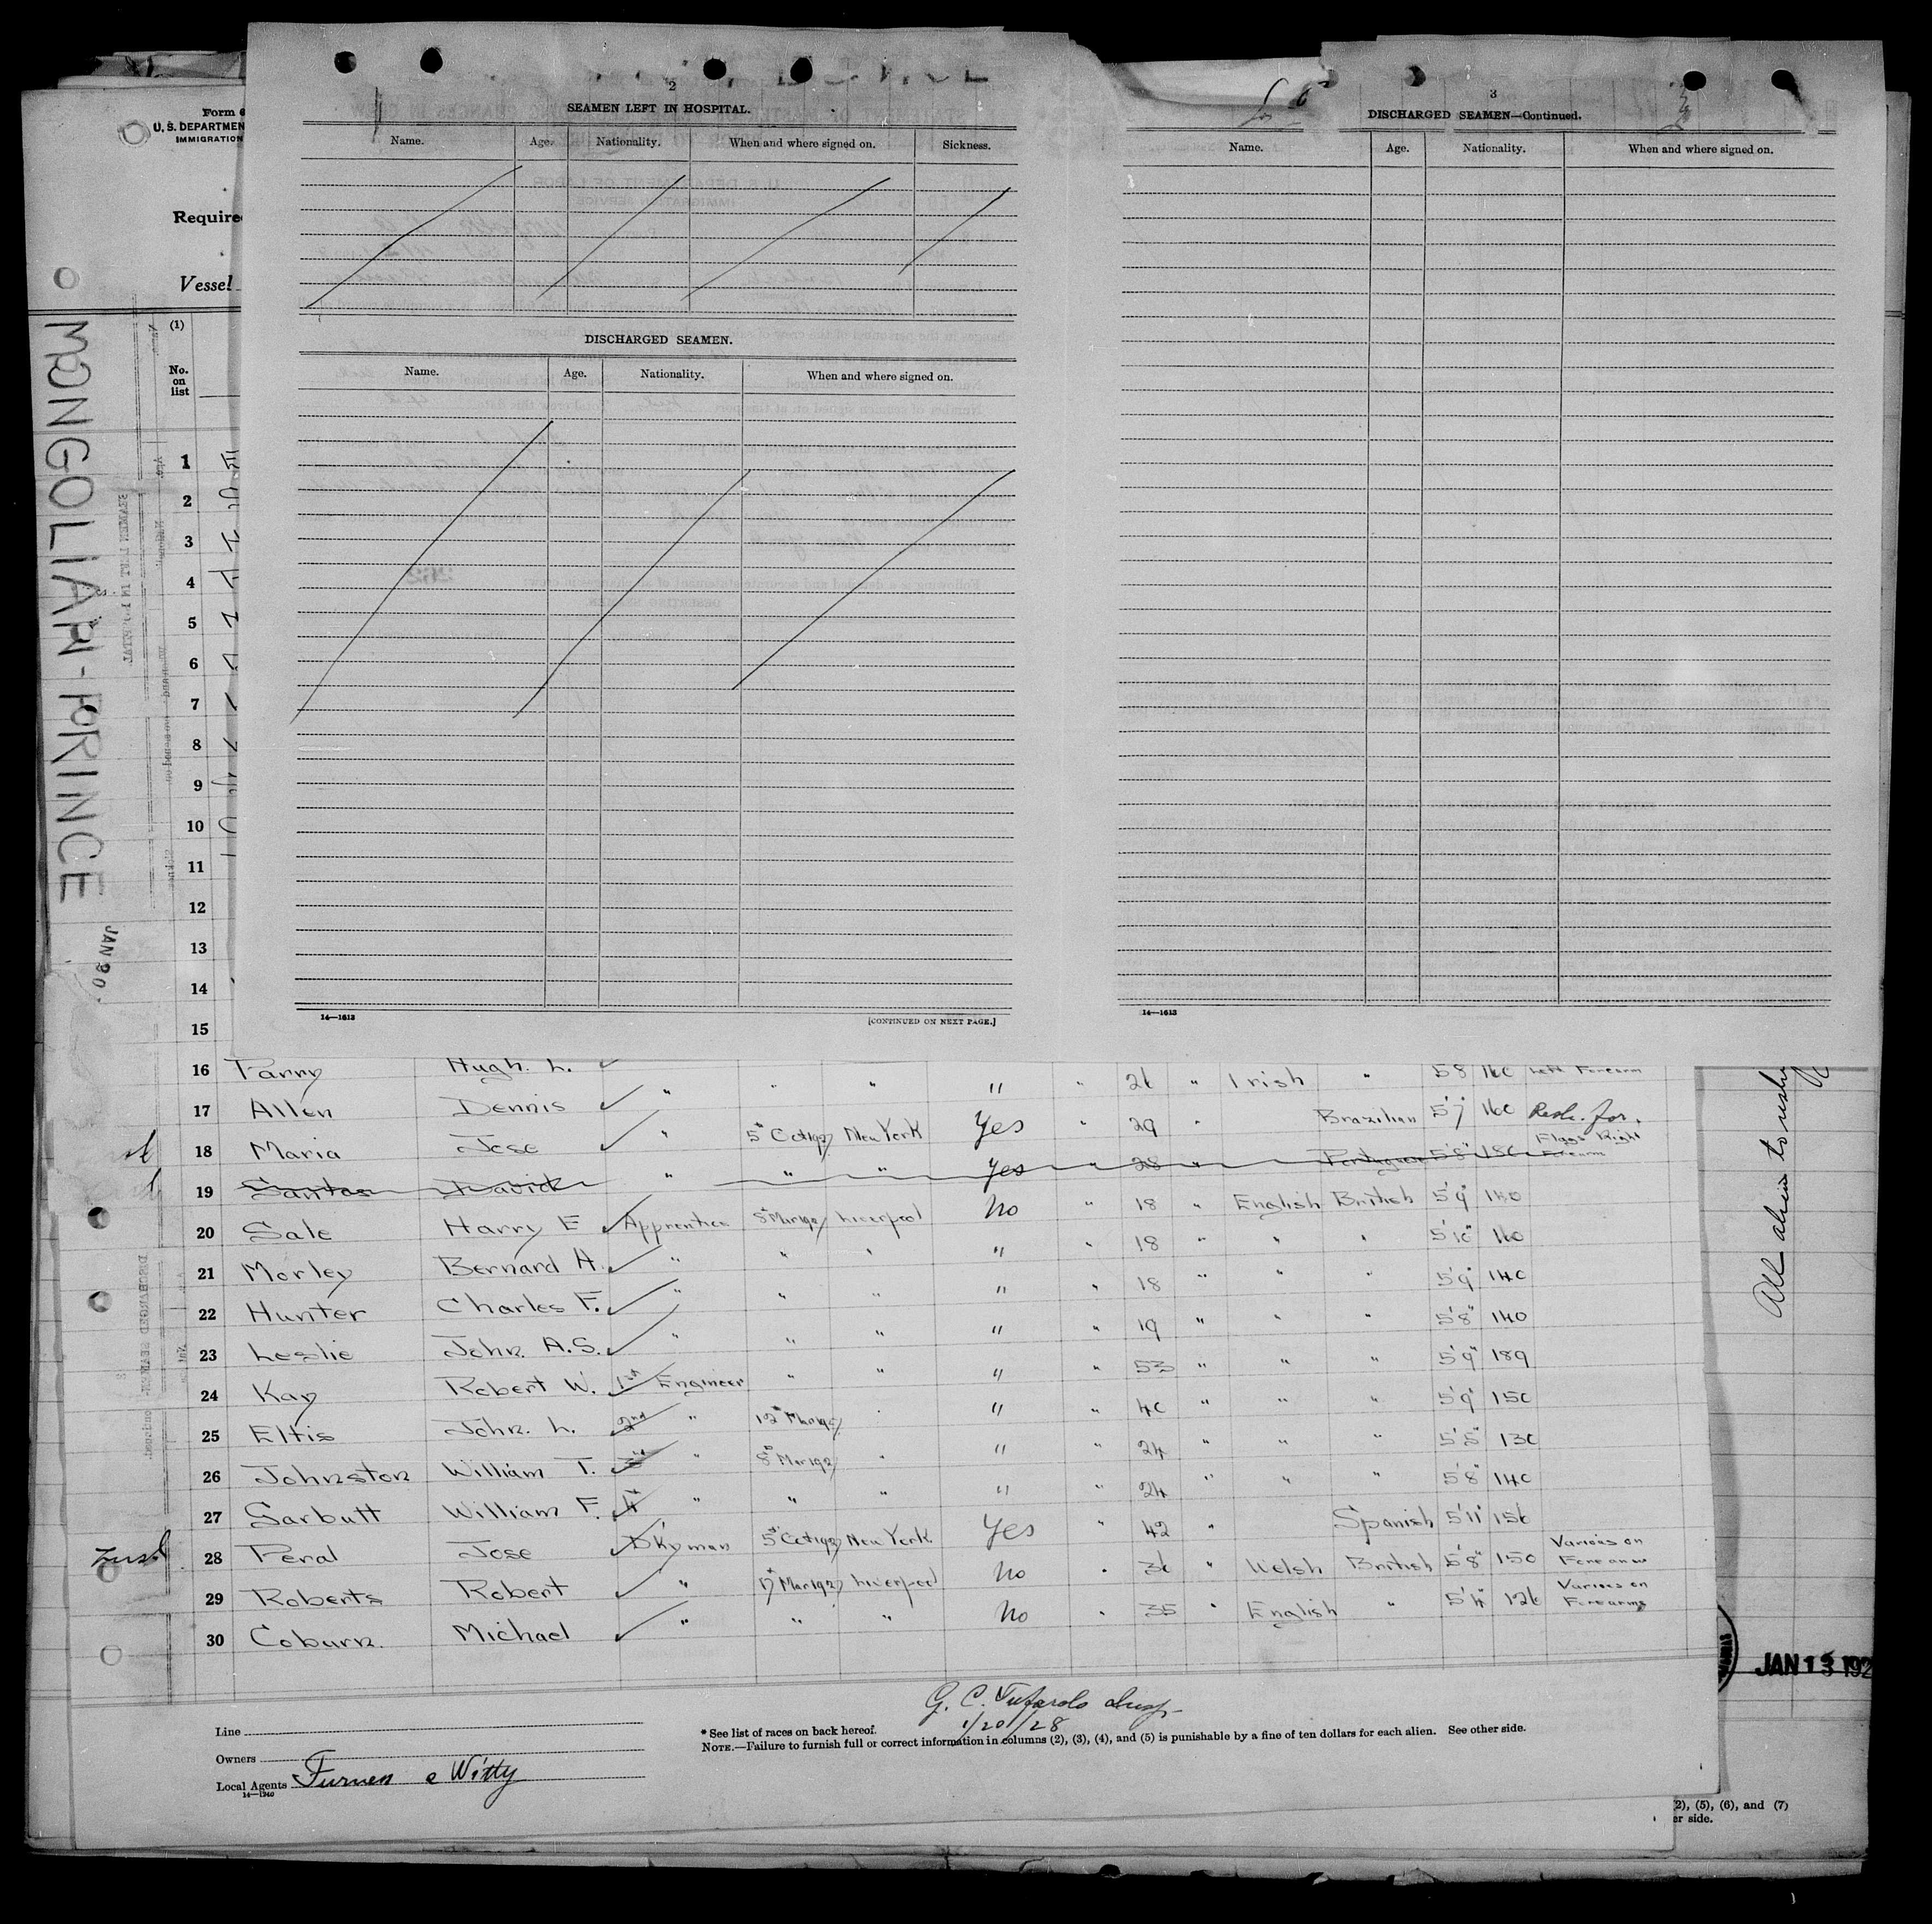 2
SEAMEN LEFT IN HOSPITAL.
Name. Age. Nationality. When and where signed on. Sickness.
DISCHARGED SEAMEN.
Name. Age. Nationality. When and where signed on.
14—1613
[CONTINUED ON NEXT PAGE.]
3
DISCHARGED SEAMEN—Continued.
Name. Age. Nationality. When and where signed on.
14—1613
Form
U. S. DEPARTMEN
IMMIGRATION
Require
Vessel
MONGOLIAN-PRINCE
JAN 20
(1)
No. on list
1
2
3
4
5
6
7
8
9
10
11
12
13
14
15
16 Hugh. L. " " " " 26 " Irish " 5'8 160 Left Forearm
17 Allen Dennis " Yes " 29 " Brazilian 5'7 160
18 Maria Jose " 5th Oct 1927 New York Yes " 28 " Portuguese 5'8" 180 Flags Right Forearm
19 Santos David " " " No " 18 " English British 5'9" 140
20 Sale Harry E Apprentice 8th Mar 1927 Liverpool " " 18 " " " 5'10" 160
21 Morley Bernard H. " " " " " 18 " " " 5'9" 140
22 Hunter Charles F. " " " " " 19 " " " 5'8" 140
23 Leslie John. A.S. " " " " " 53 " " " 5'9" 189
24 Kay Robert W. 1st Engineer " " " " 40 " " " 5'9" 150
25 Eltis John. L. 2nd " 12th Mar 1927 " " " 24 " " " 5'5" 130
26 Johnston William T. 3rd " 8th Mar 1927 " " " 24 " " " 5'8" 140
27 Garbutt William F. 4th " " " Yes " 42 " Spanish 5'11" 156
28 Peral Jose D'Kyman 5th Oct 1927 New York No " 36 " Welsh British 5'8" 150 Various on Forearms
29 Roberts Robert " 17th Mar 1927 Liverpool No " 35 " English " 5'4" 126 Various on Forearms
30 Coburn. Michael " " "
All aliens to
JAN 13 192
G. C. Tufarolo Insp.
1/20/28
Line
Owners
Local Agents Furness & Withy
14—1240
* See list of races on back hereof.
NOTE.—Failure to furnish full or correct information in columns (2), (3), (4), and (5) is punishable by a fine of ten dollars for each alien. See other side.
(2), (5), (6), and (7)
er side.